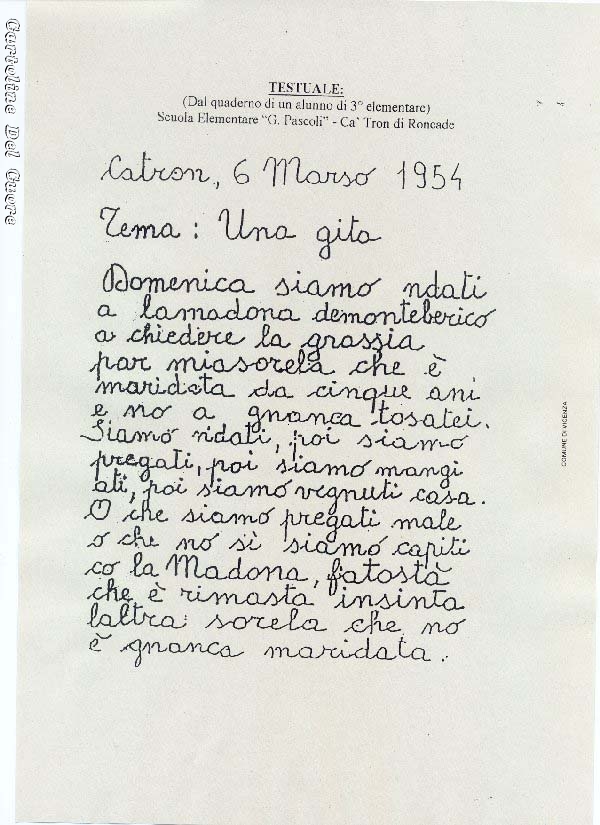 Cartoline Del Cuore
TESTUALE:
(Dal quaderno di un alunno di 3° elementare)
Scuola Elementare "G. Pascoli" - Ca' Tron di Roncade
Catron, 6 Marso 1954
Tema : Una gita
Domenica siamo ndati
a lamadona demonteberico
a chiedere la grassia
par miasorela che è
maridata da cinque ani
e no a gnanca tosatei.
Siamo ndati, poi siamo
pregati, poi siamo mangi
ati, poi siamo vegnuti casa.
O che siamo pregati male
o che no sì siamo capiti
co la Madona, fatostà
che è rimasta insinta
laltra sorela che no
è gnanca maridata.
COMUNE DI VICENZA